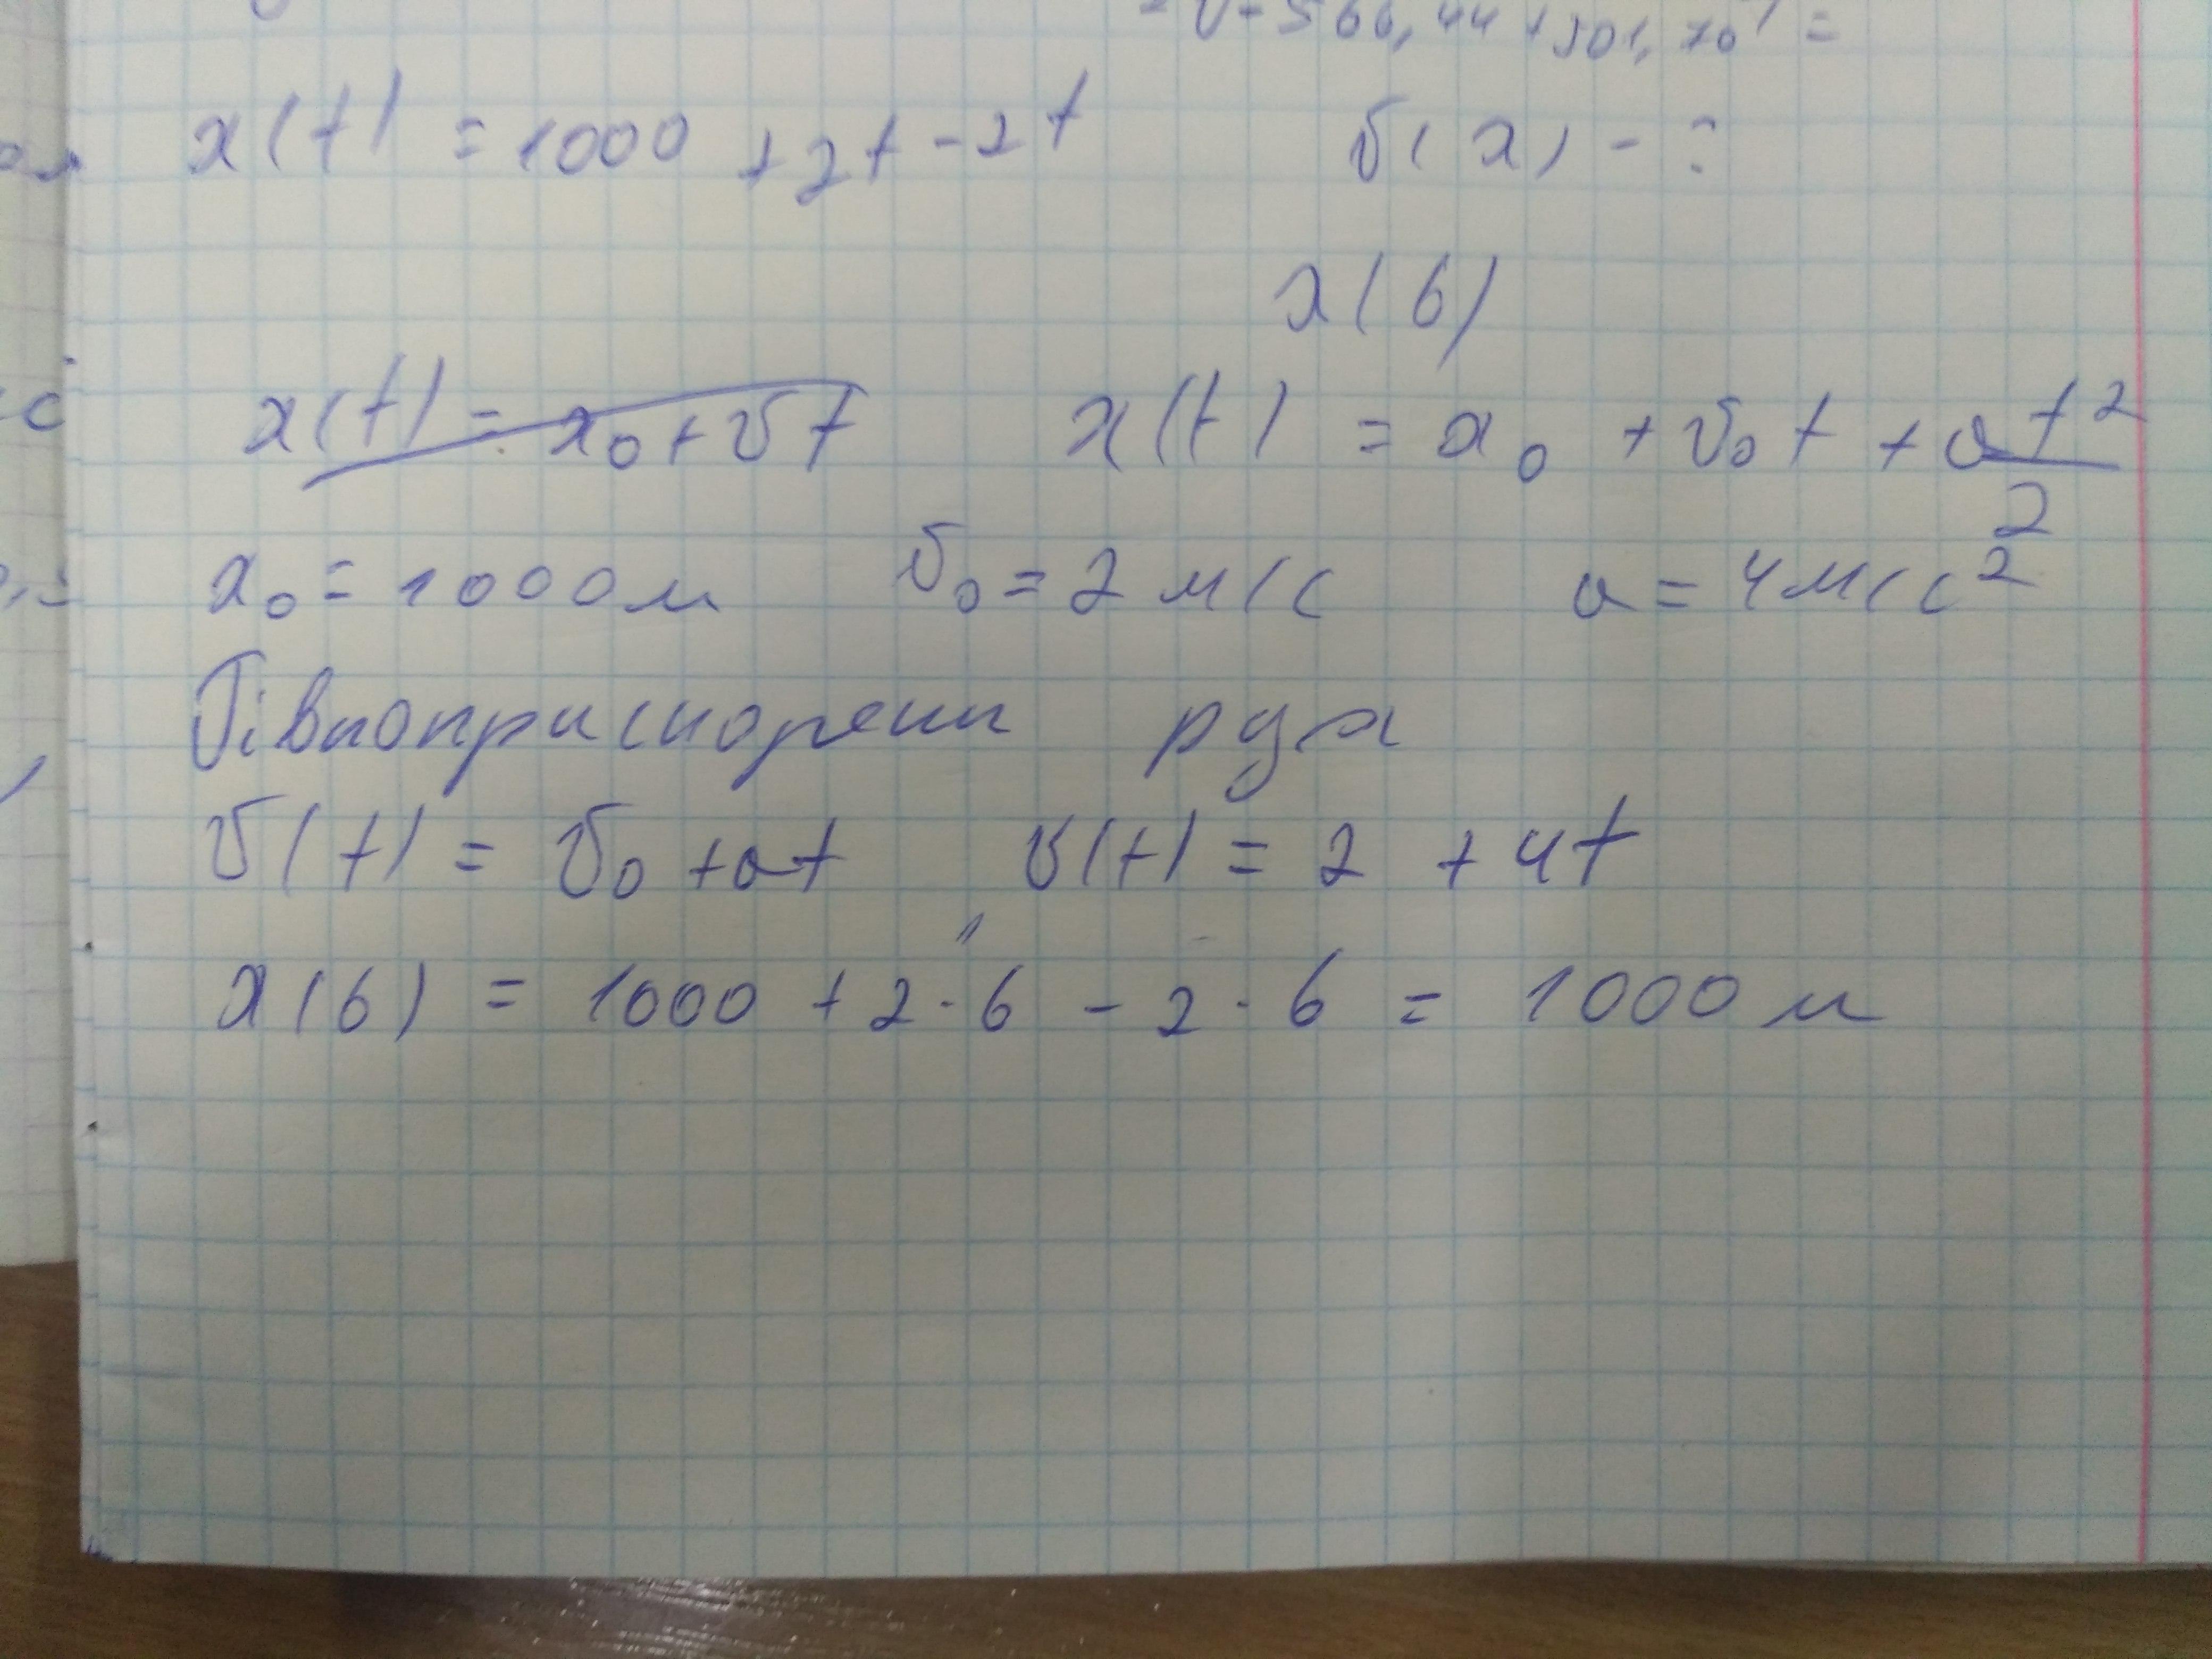 = V-566,44+501,76 =
x(t) = 1000 + 2t - 2t v(x) - ?
x(6)
x(t) = x₀ + vt x(t) = x₀ + v₀t + at²/2
x₀ = 1000м v₀ = 2 м/с a = 4м/с²
Рівноприскорени рух
v(t) = v₀ + at v(t) = 2 + 4t
x(6) = 1000 + 2·6 - 2·6 = 1000м